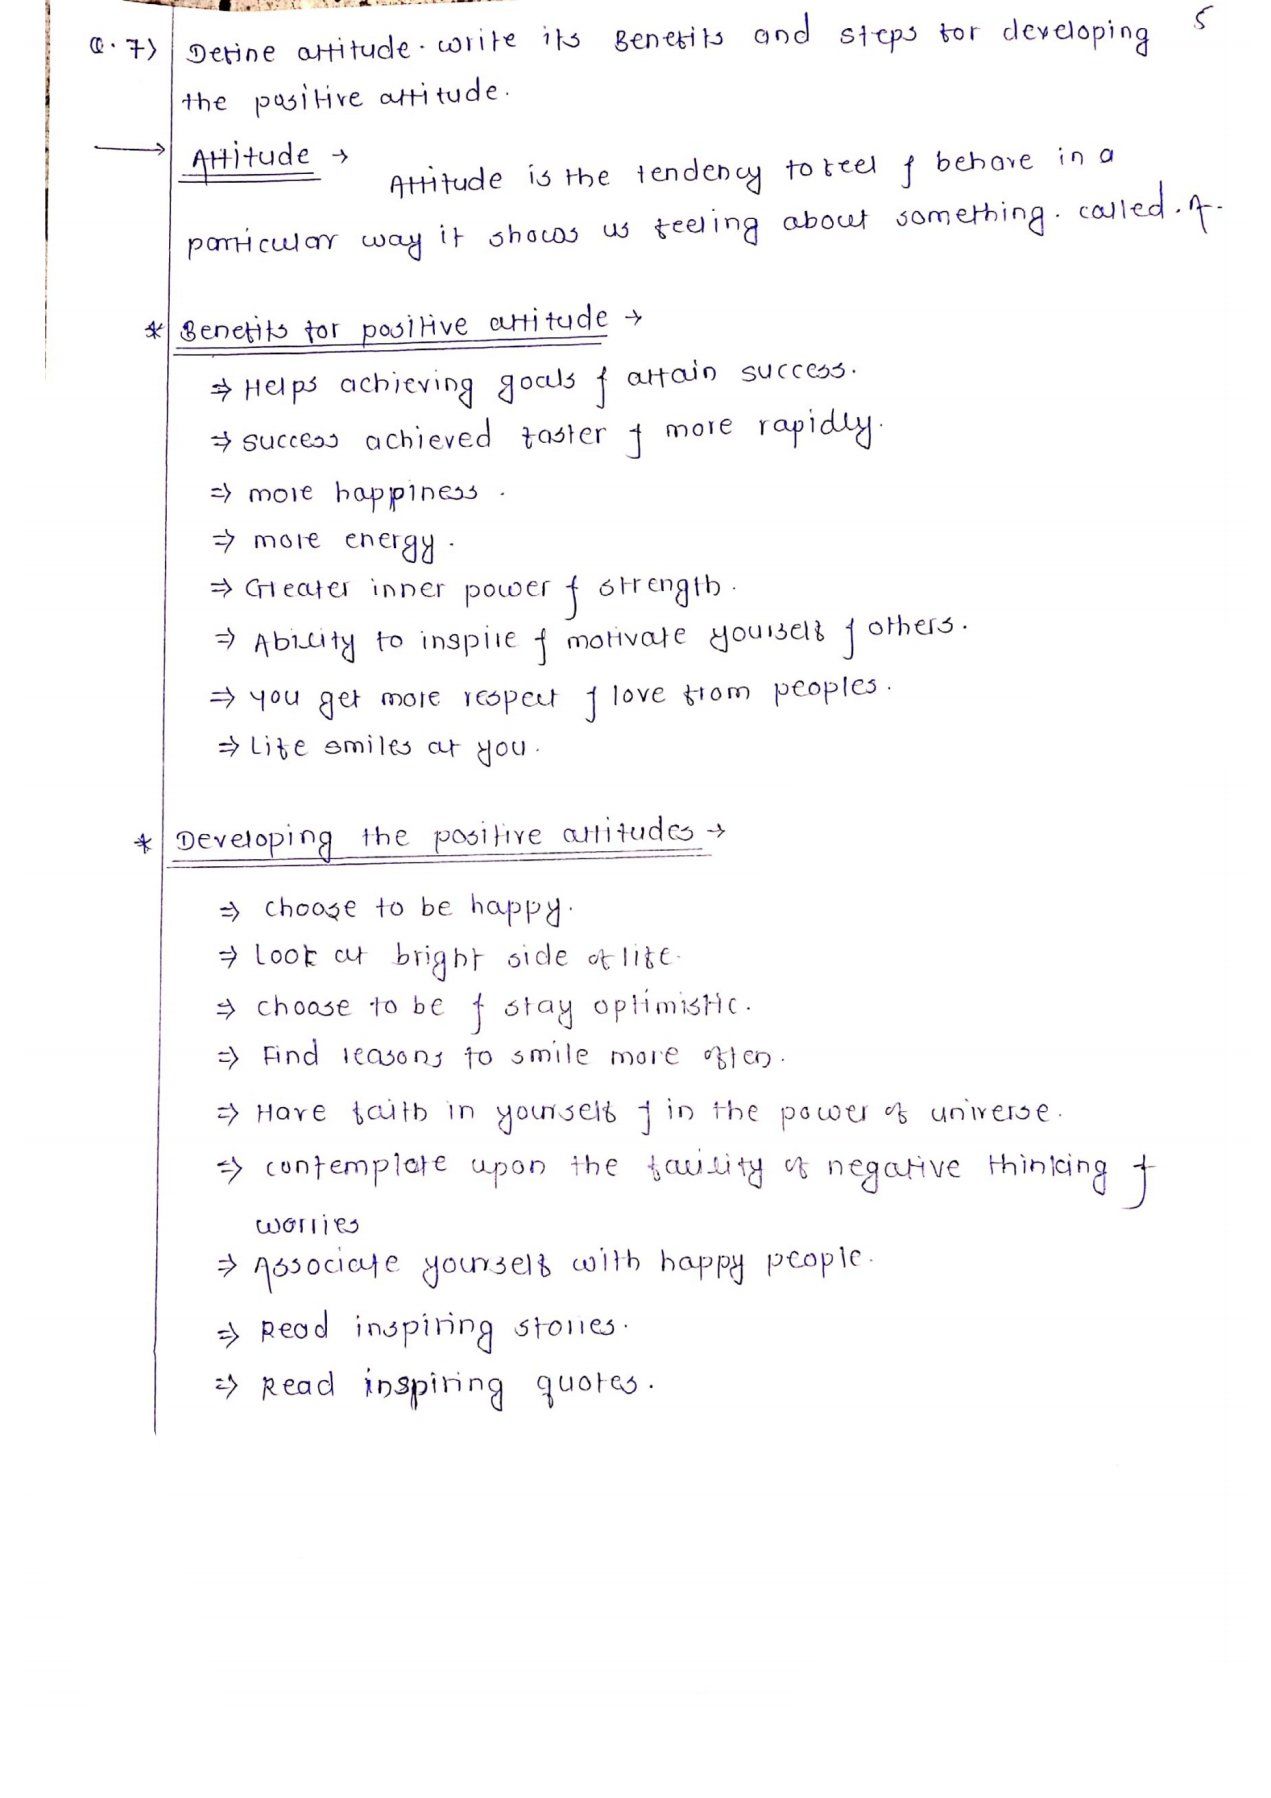 5
Q.7) Define attitude. write its Benefits and steps for developing
the positive attitude.
Attitude →
Attitude is the tendency to feel & behave in a
particular way it shows us feeling about something. called. A.
* Benefits for positive attitude →
⇒ Helps achieving goals & attain success.
⇒ success achieved faster & more rapidly.
⇒ more happiness.
⇒ more energy.
⇒ Greater inner power & strength.
⇒ Ability to inspire & motivate yourself & others.
⇒ you get more respect & love from peoples.
⇒ Life smiles at you.
* Developing the positive attitudes →
⇒ choose to be happy.
⇒ Look at bright side of life.
⇒ choose to be & stay optimistic.
⇒ Find reasons to smile more often.
⇒ Have faith in yourself & in the power of universe.
⇒ contemplate upon the of negative thinking &
worries
⇒ Associate yourself with happy people.
⇒ Read inspiring stories.
⇒ Read inspiring quotes.